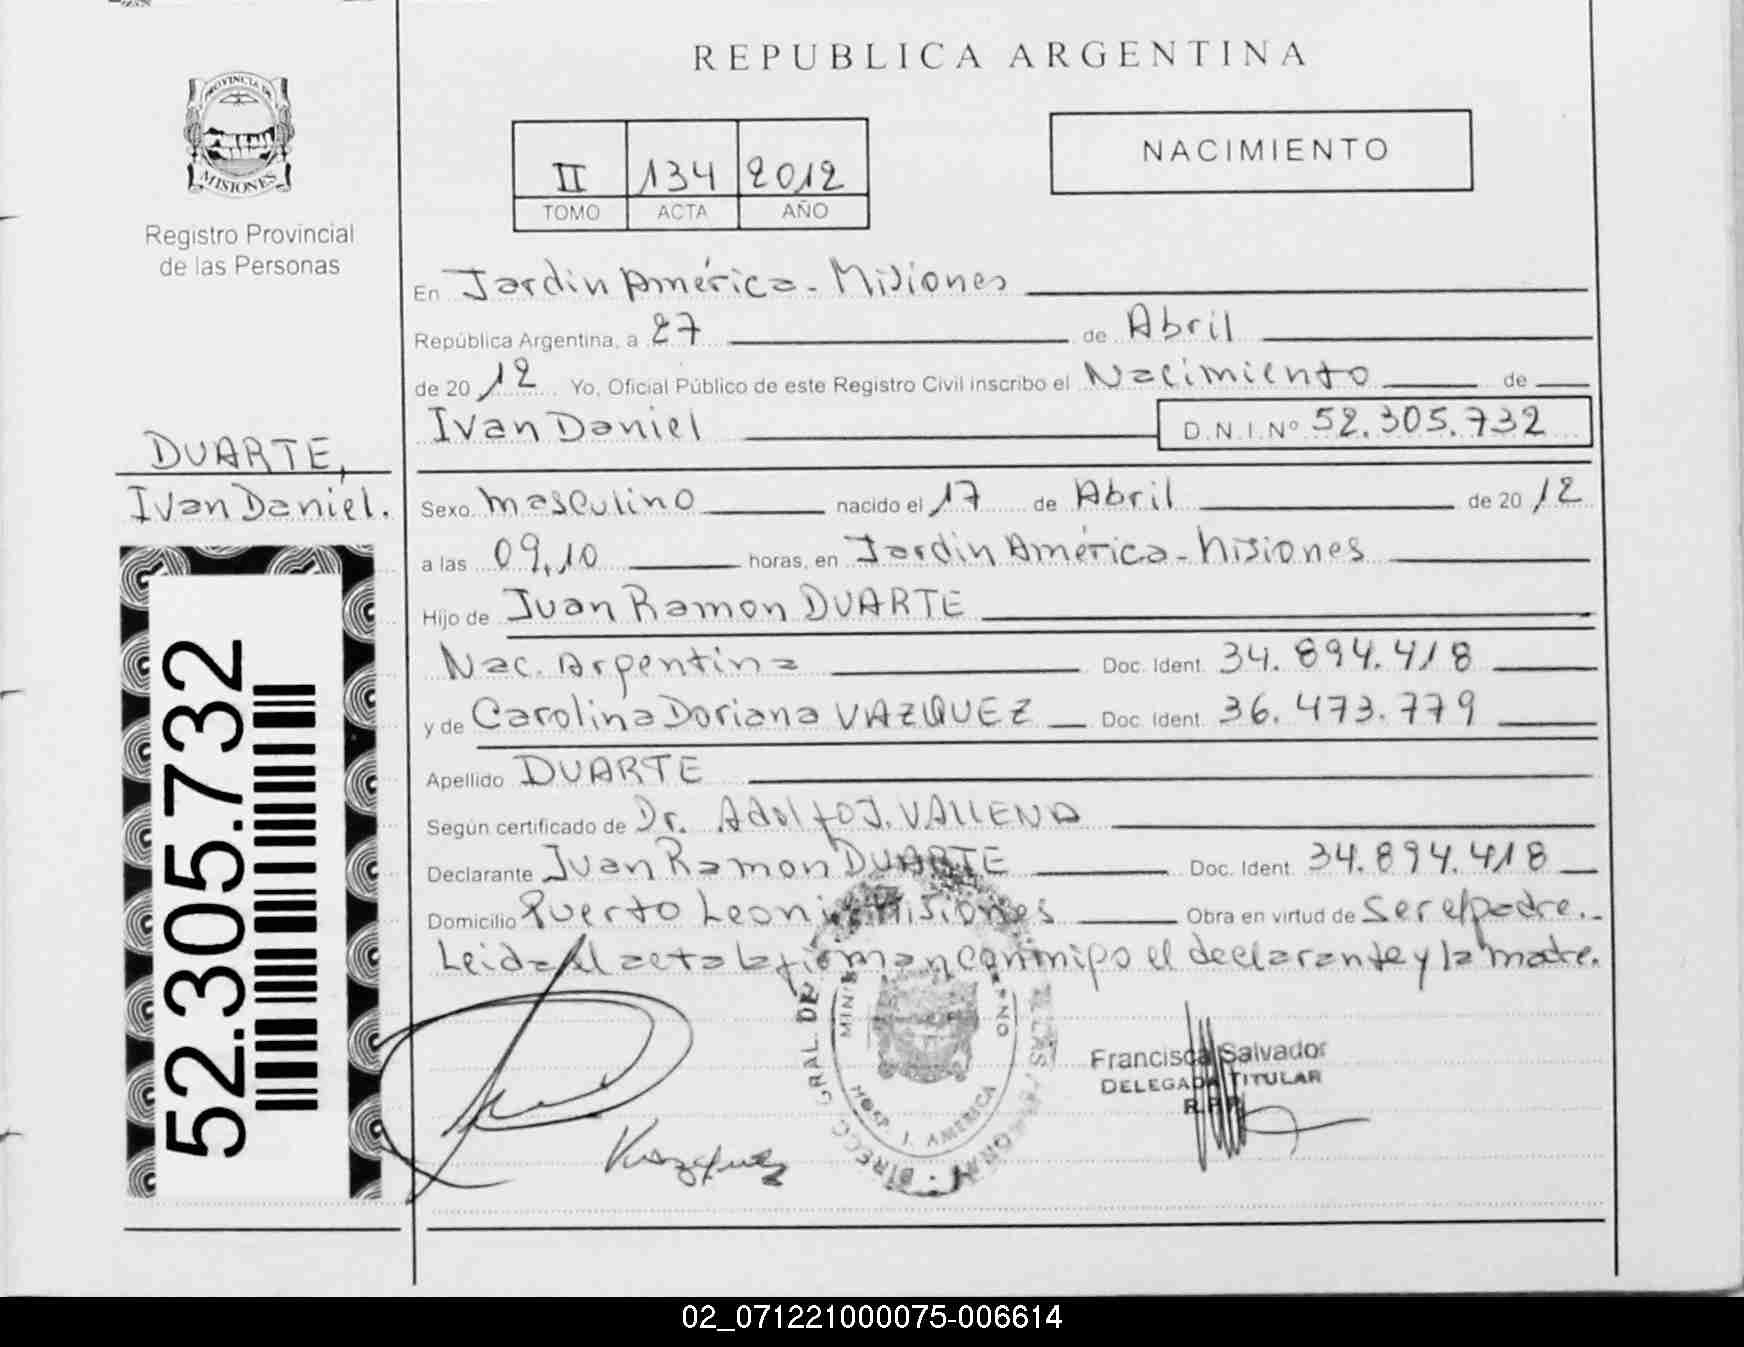 REPUBLICA ARGENTINA
PROVINCIA DE
MISIONES
Registro Provincial
de las Personas
II 134 2012
TOMO ACTA AÑO
NACIMIENTO
En Jardin América - Misiones
República Argentina, a 27 de Abril
de 2012 Yo, Oficial Público de este Registro Civil inscribo el Nacimiento de
Ivan Daniel D.N.I.Nº 52.305.732
DUARTE,
Ivan Daniel.
52.305.732
Sexo masculino nacido el 17 de Abril de 2012
a las 09,10 horas, en Jardin América - Misiones
Hijo de Juan Ramon DUARTE
Nac. Argentina Doc. Ident. 34.894.418
y de Carolina Doriana VAZQUEZ Doc. Ident. 36.473.779
Apellido DUARTE
Según certificado de Dr. Adolfo J.
Declarante Juan Ramon DUARTE Doc. Ident. 34.894.418
Domicilio Puerto Leoni Misiones Obra en virtud de Ser el padre.
Leida el acta la firman conmigo el declarante y la madre.
HOSP. J. AMERICA
Francisca Salvador
DELEGADA TITULAR
R.P.P.
Vazquez
02_071221000075-006614